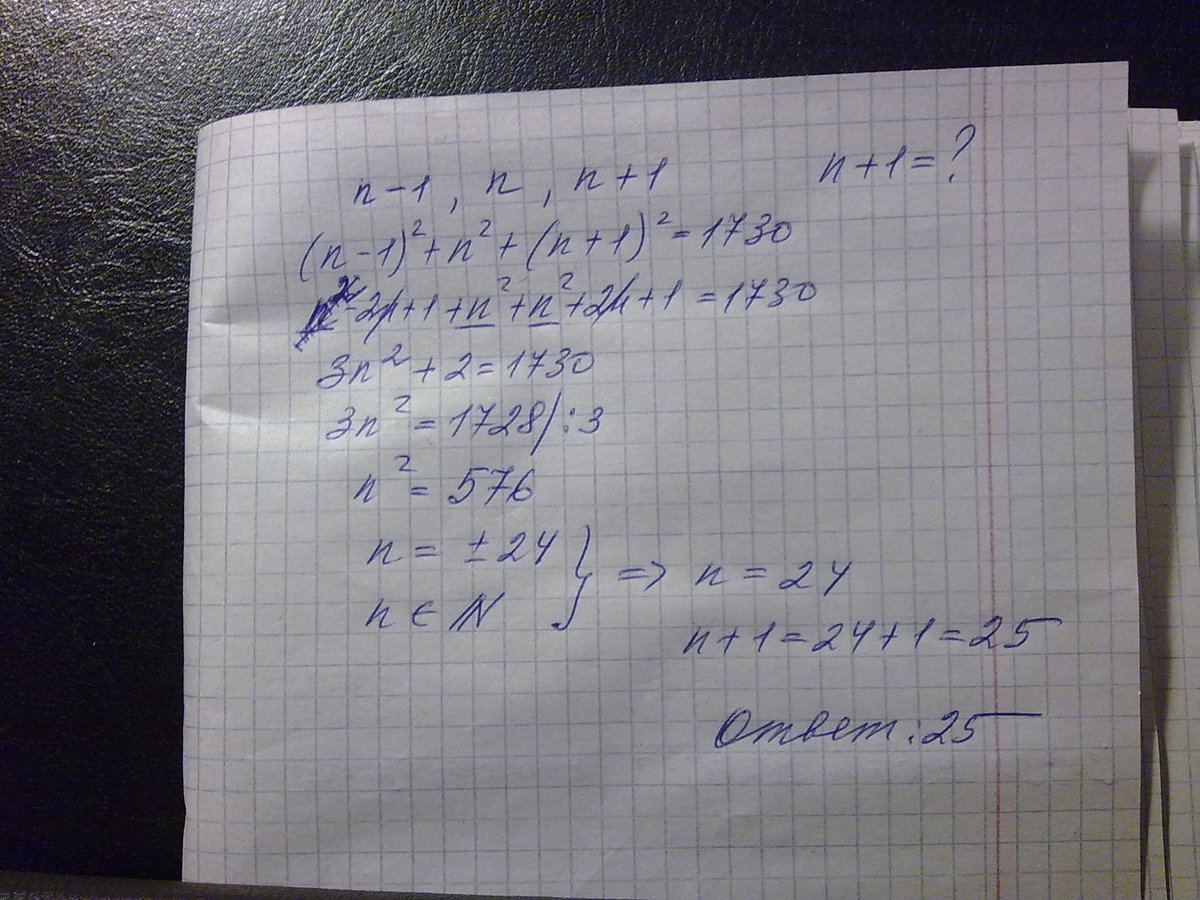 n-1, n, n+1 n+1=?
(n-1)²+n²+(n+1)²=1730
n²-2n+1+n²+n²+2n+1=1730
3n²+2=1730
3n²=1728/:3
n²=576
n=±24
n∈N } => n=24
n+1=24+1=25
Ответ:25